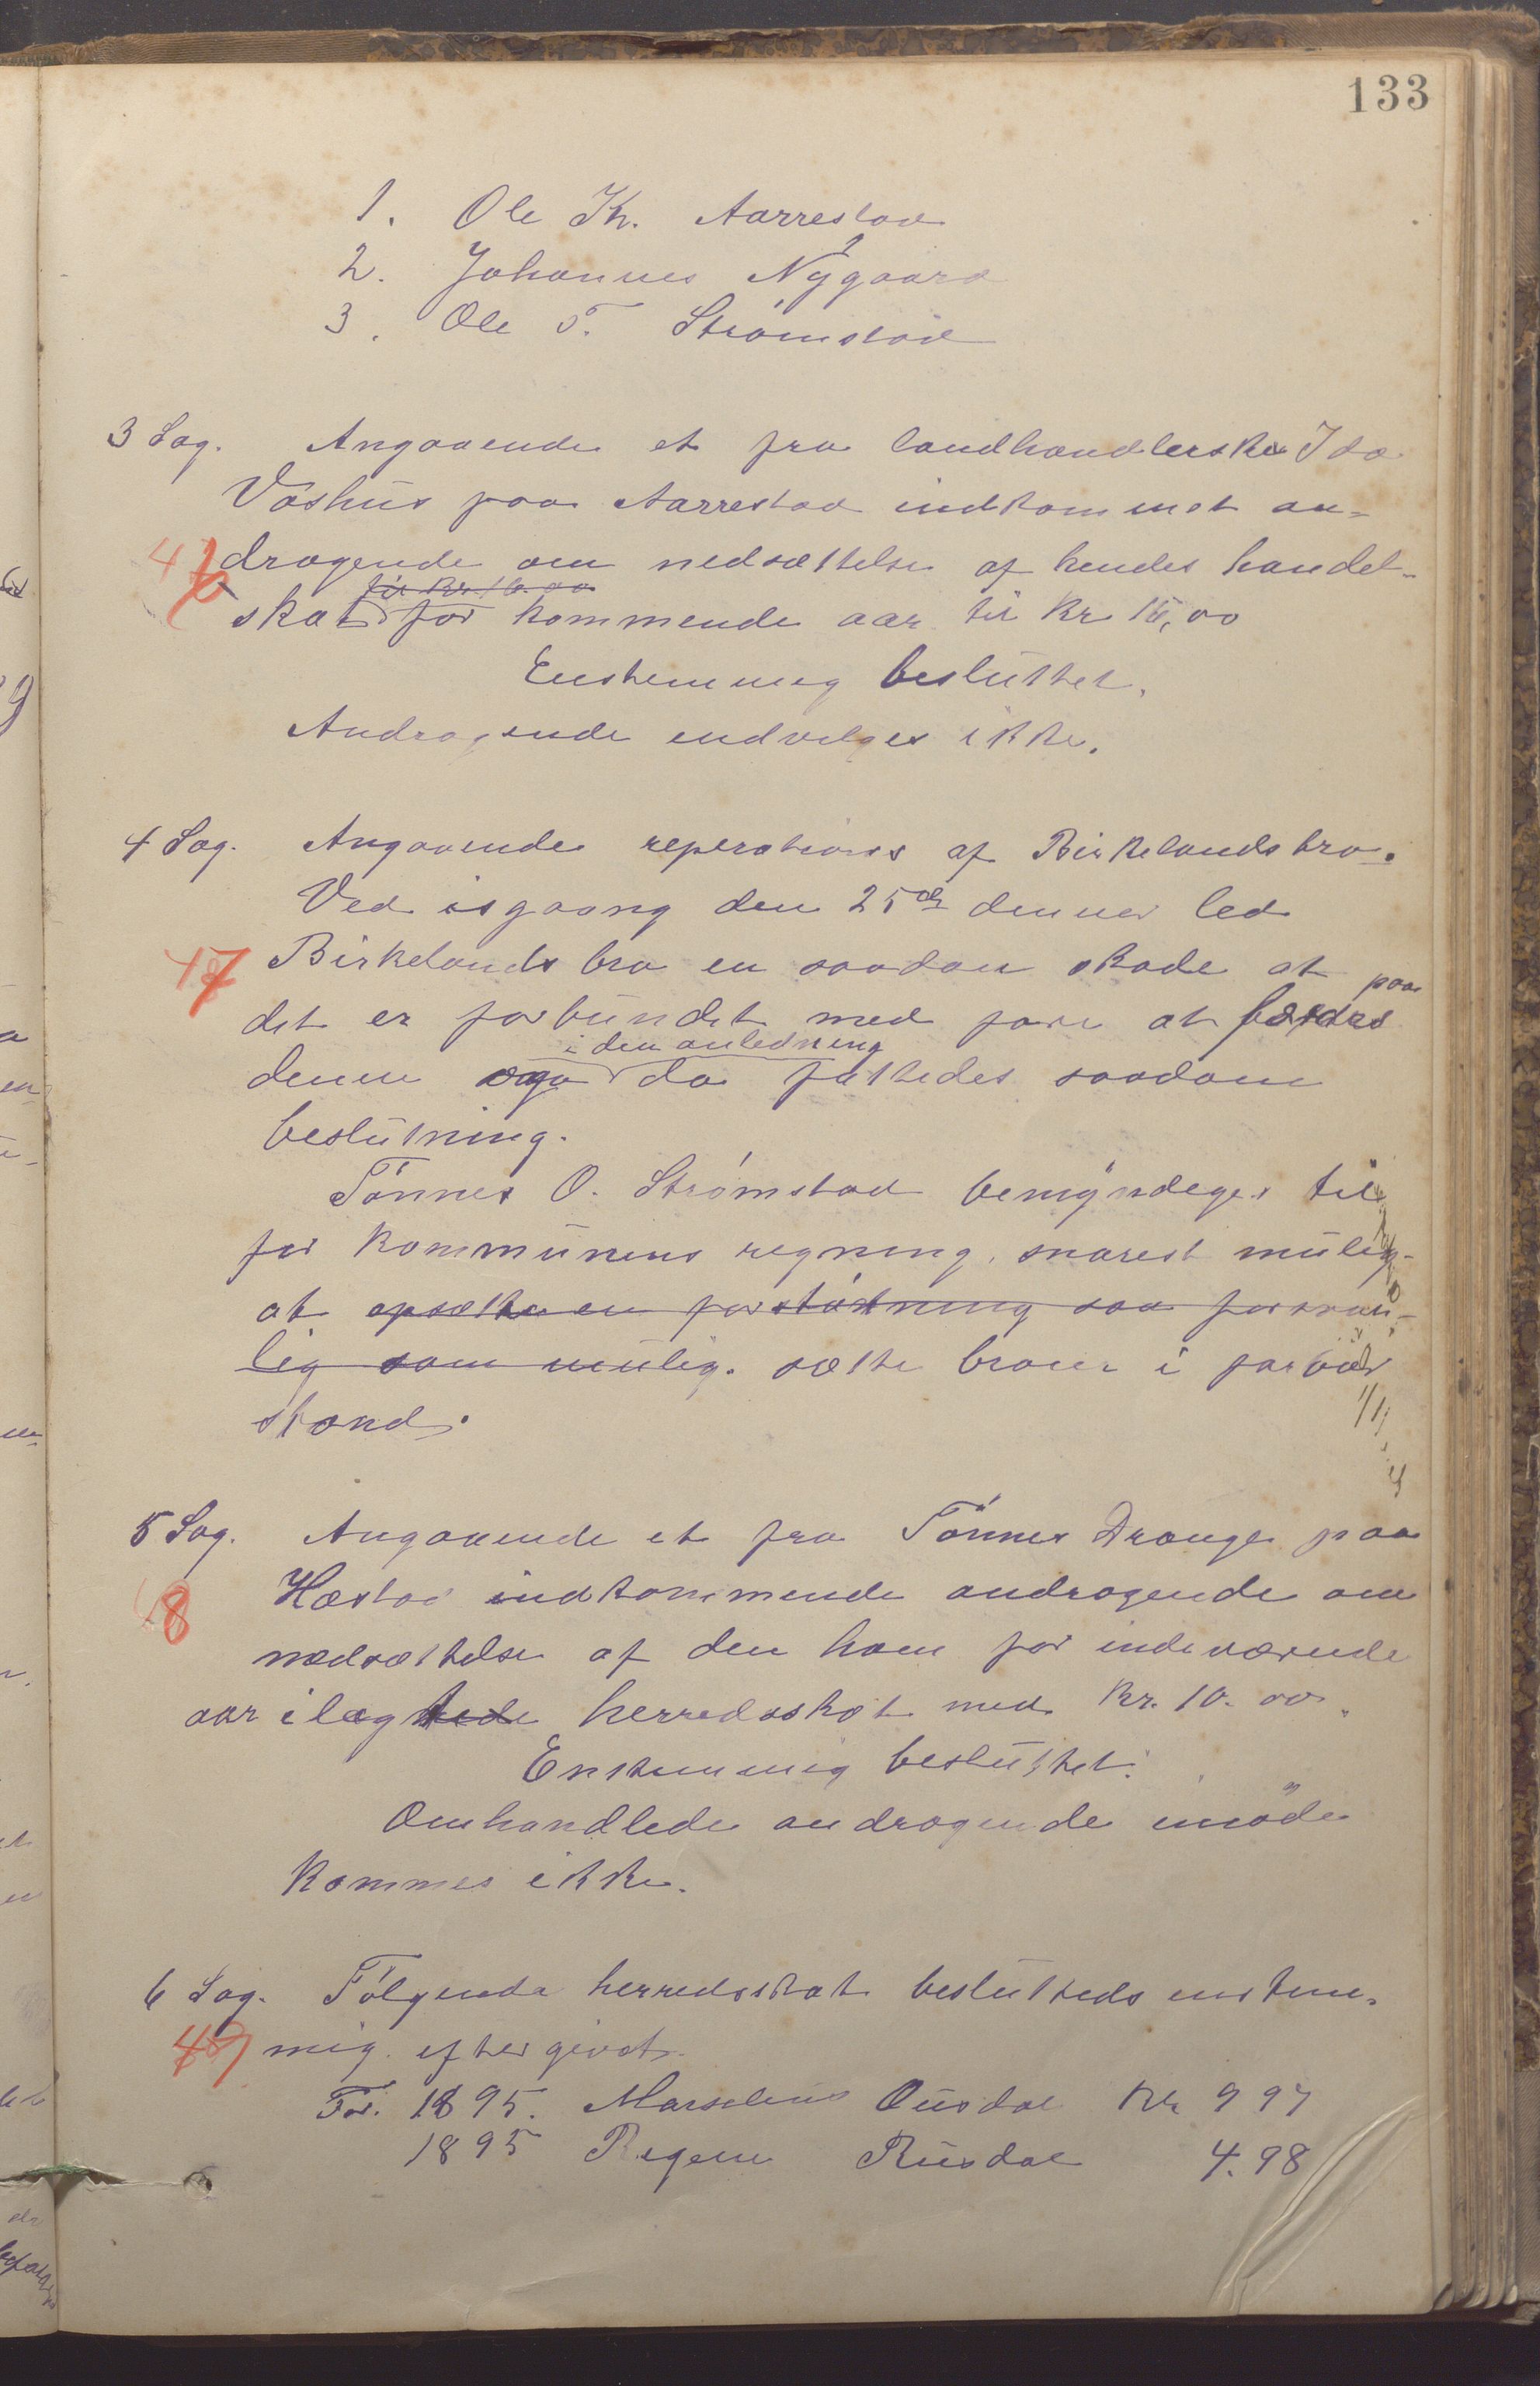 133
1. Ole Kr. Aarrestad
2. Johannes Nygaard
3. Ole T. Strømstad
3 Sag. Angaaende et fra landhandlerske Ida
Vashus paa Aarrestad indkommet an-
46 dragende om nedsættelse af hendes handel-
til Kr. 16.00
skat for kommende aar til Kr 15,00
Enstemmig besluttet.
Andragende indvilges ikke.
4 Sag. Angaaende reperations af Birkelands bro.
Ved isgaang den 25de dennes led
47 Birkelands bro en saadan skade at
det er forbundet med fare at færdes paa
i den anledning
denne da fattedes saadan
beslutning.
Tønnes O. Strømstad bemyndiges til
for kommunens regning, snarest mulig
at opsætte en forstøtning saa forsvar-
lig som mulig. sætte broen i farbar
stand.
5 Sag. Angaaende et fra Tønnes Drange paa
48 Hæstad indkommende andragende om
nedsættelse af den ham for indeværende
aar ilagte herredsskat med Kr. 10.00.
Enstemmig besluttet:
Omhandlede andragende imøde
kommes ikke.
6 Sag. Følgende herredsskat besluttedes enstem-
49 mig eftergivet.
For 1895. Marselius Ousdal Kr 9 97
1895 Regine Rusdal 4.98